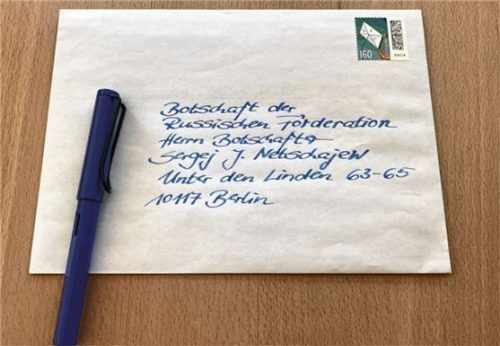 160
Botschaft der
Russischen Förderation
Herrn Botschafter
Sergej J. Netschajew
Unter den Linden 63-65
10117 Berlin